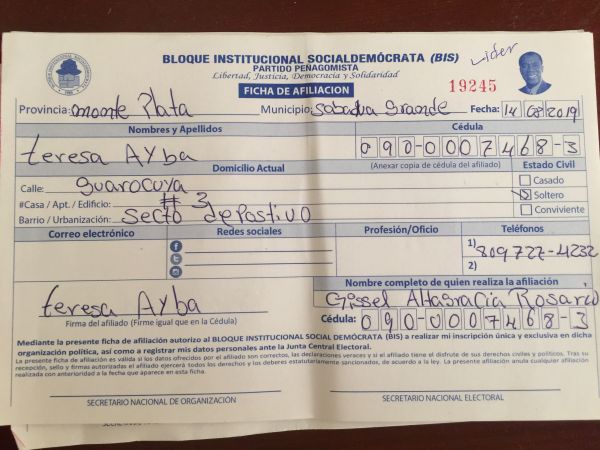 BLOQUE INSTITUCIONAL SOCIALDEMÓCRATA (BIS) Lider
PARTIDO PEÑAGOMISTA
Libertad, Justicia, Democracia y Solidaridad
FICHA DE AFILIACION 19245
Provincia: monte Plata Municipio: Sabadva Grande Fecha: 14 08 2019
Nombres y Apellidos Cédula
teresa Ayba 090-0007468-3
Domicilio Actual (Anexar copia de cédula del afiliado) Estado Civil
Calle: guarocuya Casado
#Casa / Apt. / Edificio: # 3 Soltero
Barrio / Urbanización: Secto depostivo Conviviente
Correo electrónico Redes sociales Profesión/Oficio Teléfonos
1) 809727-4232
2)
Nombre completo de quien realiza la afiliación
teresa Ayba Gissel Altasracia Rosario
Firma del afiliado (Firme igual que en la Cédula) Cédula: 090-0007468-3
Mediante la presente ficha de afiliación autorizo al BLOQUE INSTITUCIONAL SOCIAL DEMÓCRATA (BIS) a realizar mi inscripción única y exclusiva en dicha
organización política, así como a registrar mis datos personales ante la Junta Central Electoral.
La presente ficha de afiliación es válida si los datos ofrecidos por el afiliado son correctos, las declaraciones veraces y si el afiliado tiene el disfrute de sus derechos civiles y políticos. Tras su
recepción, sello y firmas autorizadas el afiliado ejercerá todos los derechos y los deberes estatutariamente sancionados, de acuerdo a la ley. La presente afiliación anula cualquier afiliación
realizada con anterioridad a la fecha que aparece en esta ficha.
SECRETARIO NACIONAL DE ORGANIZACIÓN SECRETARIO NACIONAL ELECTORAL